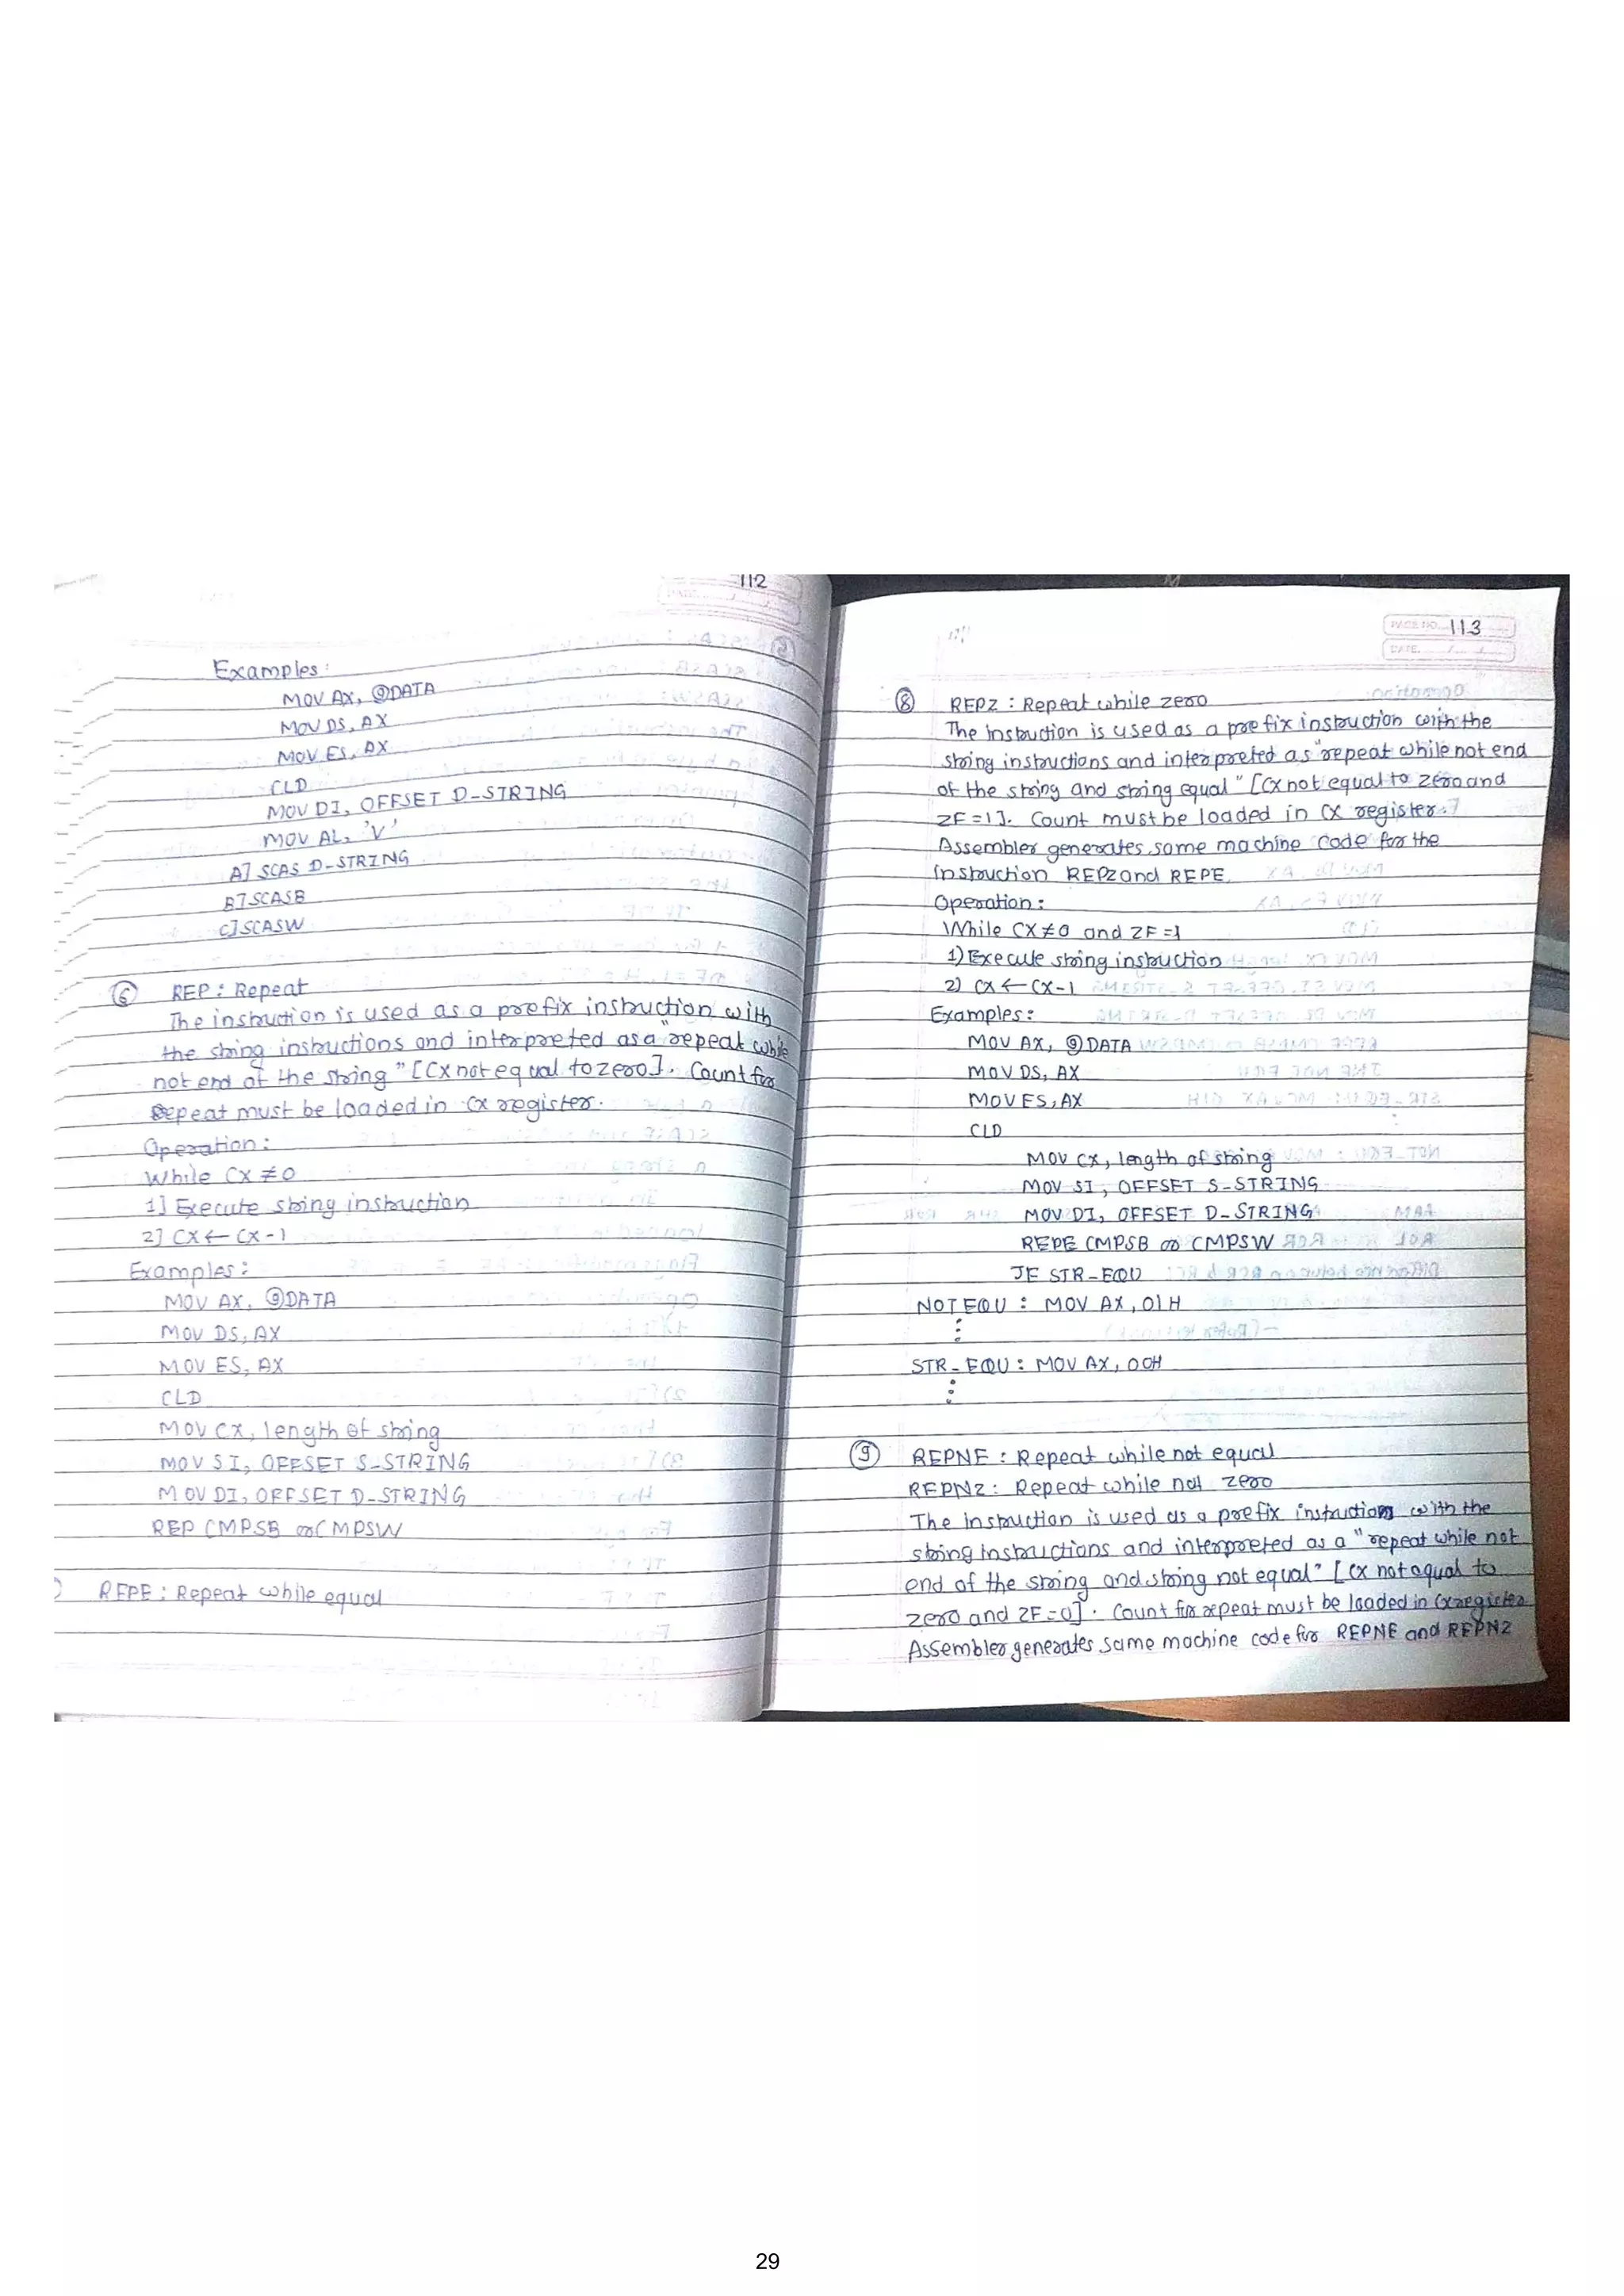 112
Examples:
MOV AX, @DATA
MOV DS, AX
MOV ES, AX
CLD
MOV DI, OFFSET D-STRING
MOV AL, 'V'
A] SCAS D-STRING
B] SCASB
C] SCASW
6 REP : Repeat
The instruction is used as a prefix instruction with
the string instructions and interpreted as a "repeat while
not end of the string" [CX not equal to zero]. Count for
Repeat must be loaded in CX register.
Operation:
While CX ≠ 0
1] Execute string instruction
2] CX ← CX - 1
Examples:
MOV AX, @DATA
MOV DS, AX
MOV ES, AX
CLD
MOV CX, length of string
MOV SI, OFFSET S-STRING
MOV DI, OFFSET D-STRING
REP CMPSB or CMPSW
REPE : Repeat while equal
PAGE NO. 113
DATE. / /
8 REPZ : Repeat while zero
The instruction is used as a prefix instruction with the
string instructions and interpreted as "repeat while not end
of the string and string equal" [CX not equal to zero and
ZF = 1]. Count must be loaded in CX register.
Assembler generates same machine code for the
instruction REPZ and REPE.
Operation:
While CX ≠ 0 and ZF = 1
1) Execute string instruction
2) CX ← CX - 1
Examples:
MOV AX, @DATA
MOV DS, AX
MOV ES, AX
CLD
MOV CX, length of string
MOV SI, OFFSET S-STRING
MOV DI, OFFSET D-STRING
REPE CMPSB or CMPSW
JE STR-EQU
NOT EQU : MOV AX, 01H
STR-EQU : MOV AX, 00H
9 REPNE : Repeat while not equal
REPNZ : Repeat while not zero
The instruction is used as a prefix instruction with the
string instructions and interpreted as a "repeat while not
end of the string and string not equal" [CX not equal to
zero and ZF = 0]. Count for repeat must be loaded in CX register
Assembler generates same machine code for REPNE and REPNZ
29